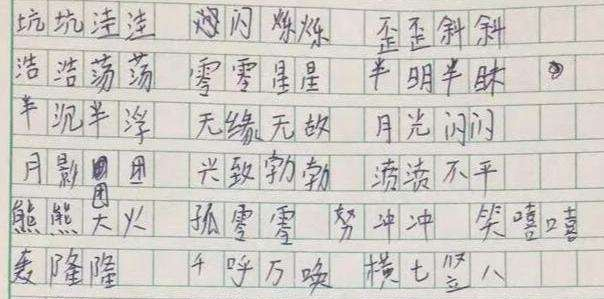 坑坑洼洼 闪烁烁 歪歪斜斜
浩浩荡荡 零零星星 半明半昧
半沉半浮 无缘无故 月光闪闪
月影团团 兴致勃勃 愤愤不平
熊熊大火 孤零零 努冲冲 笑嘻嘻
轰隆隆 千呼万唤 横七竖八